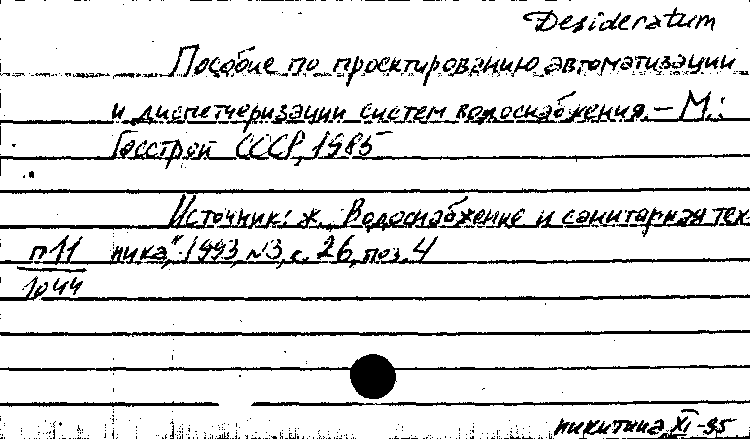 Desideratum
Пособие по проектированию автоматизации
и диспетчеризации систем водоснабжения. – М.:
Госстрой СССР, 1985
Источник: ж. „Водоснабжение и санитарная тех-
п 11 ника", 1993, №3, с. 26, поз. 4
1044
никитина XI-95